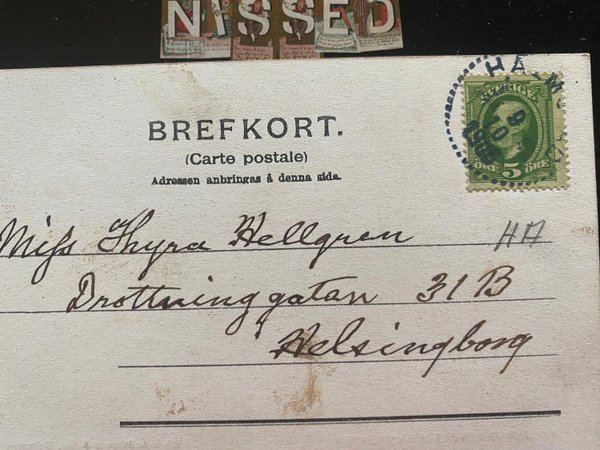 NISSED
BREFKORT.
(Carte postale)
Adressen anbringas å denna sida.
SVERIGE
5 ÖRE
Miss Thyra Hellgren
HA
Drottninggatan 31 B
Helsingborg